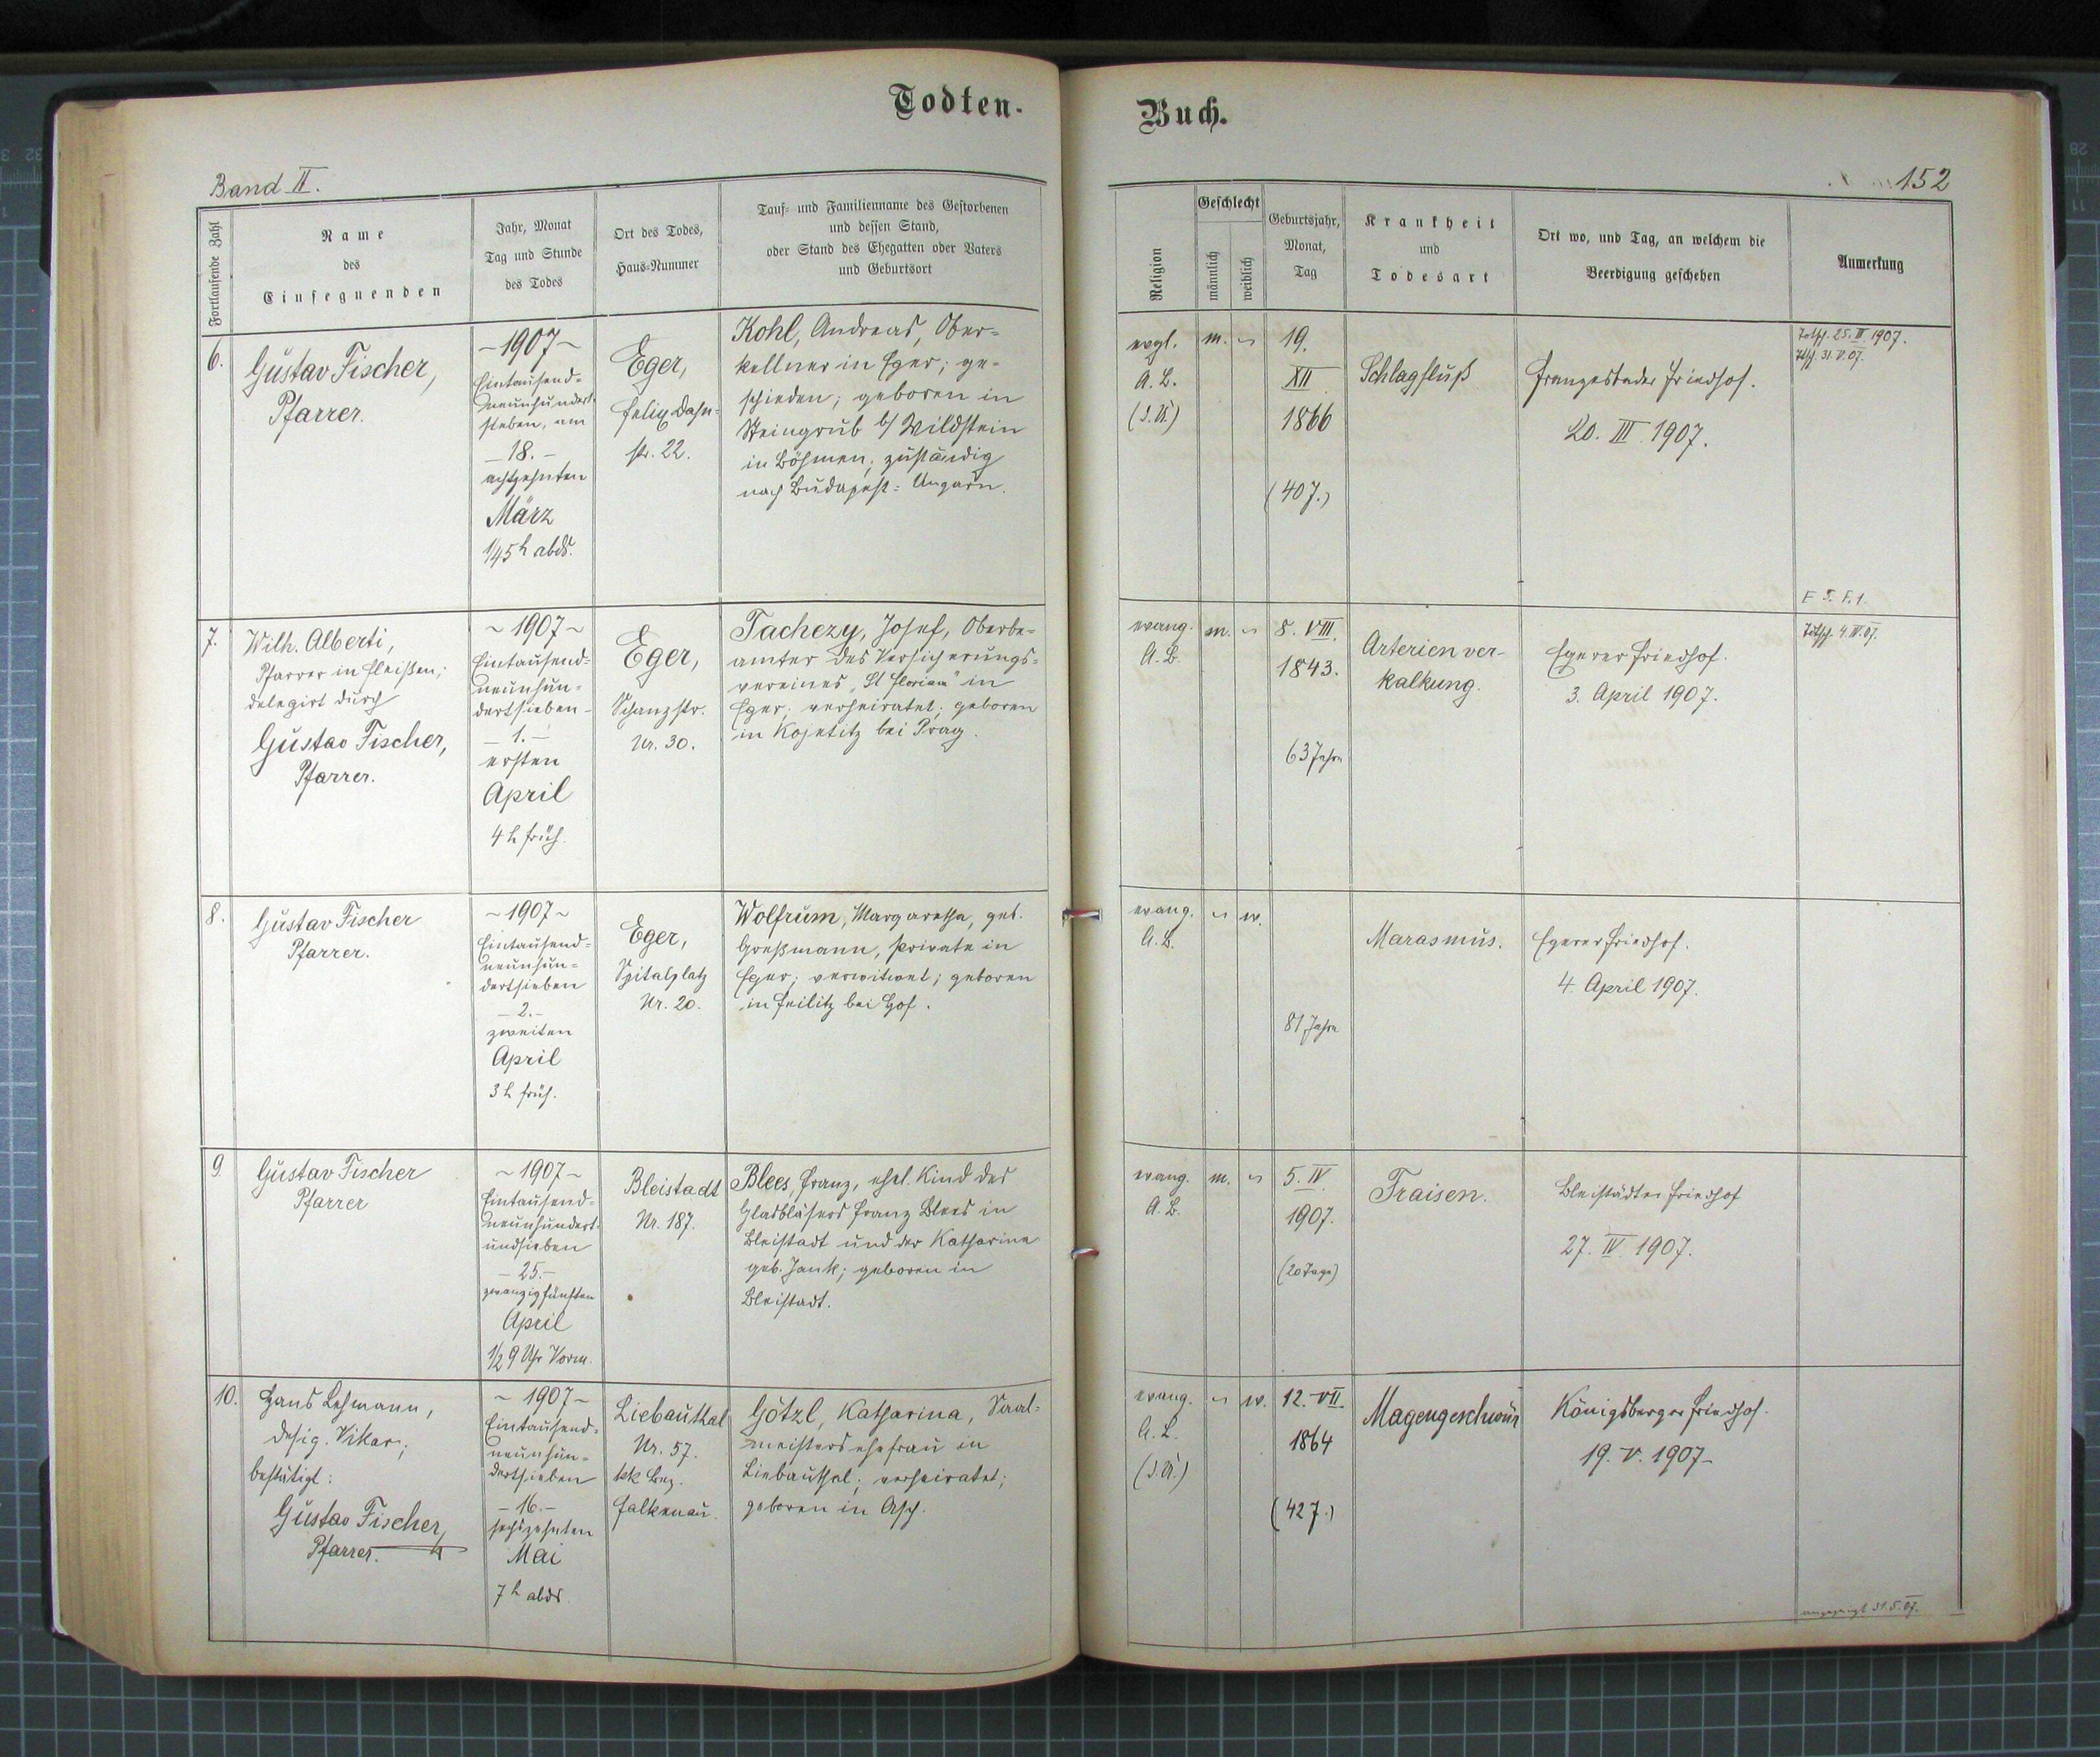 Todten-
Buch.
Band II.
152
Fortlaufende Zahl
Name
des
Einsegnenden
Jahr, Monat
Tag und Stunde
des Todes
Ort des Todes,
Haus-Nummer
Tauf- und Familienname des Gestorbenen
und dessen Stand,
oder Stand des Ehegatten oder Vaters
und Geburtsort
Religion
Geschlecht
männlich
weiblich
Geburtsjahr,
Monat,
Tag
Krankheit
und
Todesart
Ort wo, und Tag, an welchem die
Beerdigung geschehen
Anmerkung
6.
Gustav Fischer,
Pfarrer.
- 1907 -
Eintausend-
neunhundert-
sieben, am
- 18. -
achtzehnten
März
1/45 h abds.
Eger,
Felix Dahn-
str. 22.
Kohl, Andreas, Ober-
kellner in Eger; ge-
schieden; geboren in
Steingrub b/ Wildstein
in Böhmen; zuständig
nach Budapest-Ungarn.
evgl.
A. B.
m.
19.
XII
1866
(40 J.)
Schlagfluß
Franzesbader Friedhof.
20. III. 1907.
1907.
31. V. 07.
7.
Wilh. Alberti,
Pfarrer in Fleißen;
delegirt durch
Gustav Fischer,
Pfarrer.
~ 1907 ~
Eintausend-
neunhun-
dertsieben
- 1. -
ersten
April
4 h früh.
Eger,
Schanzstr.
Nr. 30.
Tachezy, Josef, Oberbe-
amter des Versicherungs-
vereines "St Florian" in
Eger; verheiratet; geboren
in Kojetitz bei Prag.
evang.
A. B.
m.
8. VIII.
1843.
63 Jahre
Arterienver-
kalkung.
Egerer Friedhof.
3. April 1907.
4. IV. 07.
8.
Gustav Fischer
Pfarrer.
~ 1907 ~
Eintausend-
neunhun-
dertsieben
- 2. -
zweiten
April
3 h früh.
Eger,
Spitalplatz
Nr. 20.
Wolfrum, Margaretha, geb.
Großmann, Private in
Eger; verwitwet; geboren
in Feilitz bei Hof.
evang.
A. B.
w.
81 Jahre
Marasmus.
Egerer Friedhof.
4. April 1907.
9.
Gustav Fischer
Pfarrer
~ 1907 ~
Eintausend-
neunhundert-
undsieben
- 25. -
zwanzigfünften
April
1/2 9 Uhr Vorm.
Bleistadt
Nr. 187.
Blees, Franz, ehel. Kind des
Glasbläsers Franz Blees in
Bleistadt und der Katharina
geb. Jank; geboren in
Bleistadt.
evang.
A. B.
m.
5. IV.
1907.
(20 Tage)
Fraisen.
Bleistädter Friedhof
27. IV. 1907.
10.
Hans Lehmann,
desig. Vikar;
bestätigt:
Gustav Fischer,
Pfarrer.
~ 1907 ~
Eintausend-
neunhun-
dertsieben
- 16. -
sechszehnten
Mai
7 h abds
Liebauthal
Nr. 57.
kk Bez.
Falkenau.
Götzl, Katharina, Saal-
meistersehefrau in
Liebauthal; verheiratet;
geboren in Asch.
evang.
A. B.
w.
12. VII.
1864
(42 J.)
Magengeschwür
Königsberger Friedhof.
19. V. 1907-
angezeigt 31.5.07.